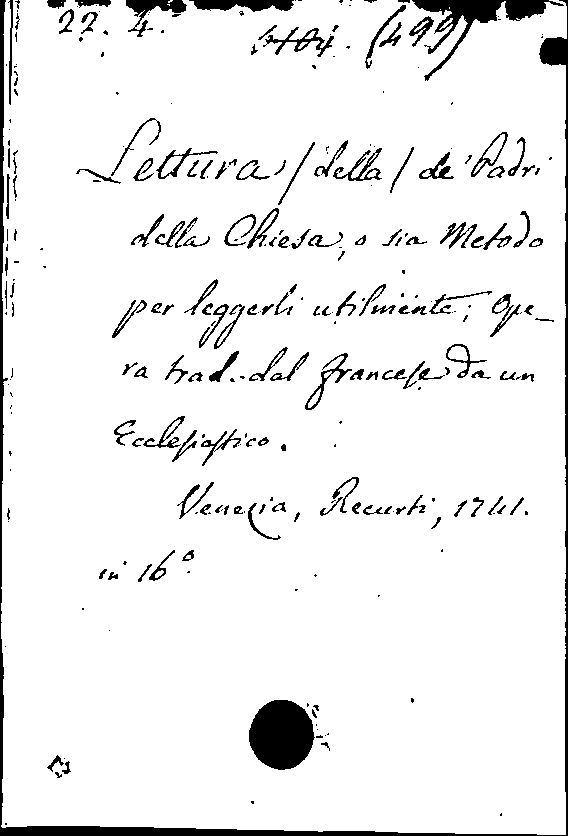 22. 4.
3104. (499)
Lettura /della/ de' Padri
della Chiesa, o sia Metodo
per leggerli utilmente; Ope-
ra trad. dal francese da un
Ecclesiastico.
Venezia, Recurti, 1741.
in 16º